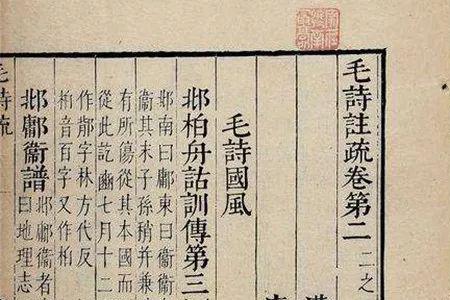 毛詩註疏卷第二 二之
毛詩國風
邶柏舟詁訓傳第三
邶南曰鄘東曰衞衞
衞其末子孫稍并兼
有所傷從其本國而
從此訖豳七月十二
作鄁字林方代反
柏音百字又作栢
邶鄘衞譜 邶鄘衞者
曰地理志
毛詩疏